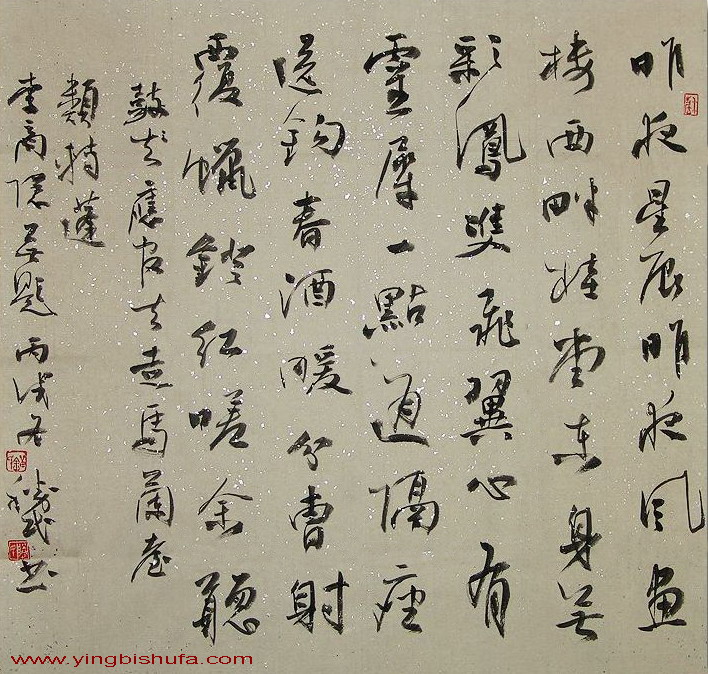 昨夜星辰昨夜風畫
樓西畔桂堂東身無
彩鳳雙飛翼心有
靈犀一點通隔座
送鈎春酒暖分曹射
覆蠟燈紅嗟余聽
鼓去應官去走馬蘭臺
類轉蓬
李商隱無題 丙戌冬 書
www.yingbishufa.com